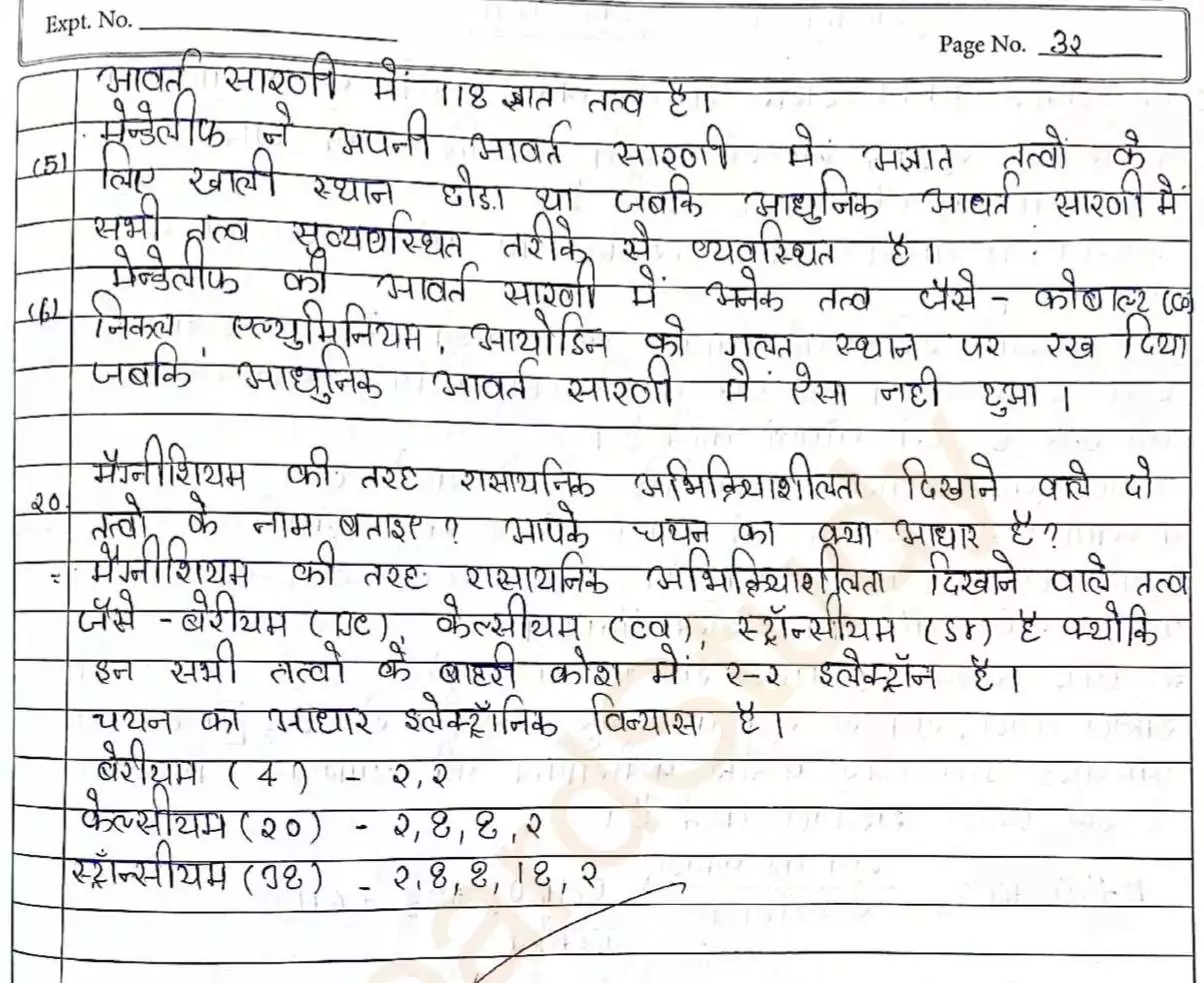 Expt. No.
Page No. 32
आवर्त सारणी में 118 ज्ञात तत्व है।
मेन्डेलीफ ने अपनी आवर्त सारणी में अज्ञात तत्वों के
(5) लिए खाली स्थान छोडा था जबकि आधुनिक आवर्त सारणी में
सभी तत्व सुव्यवस्थित तरीके से व्यवस्थित है।
मेन्डेलीफ की आवर्त सारणी में अनेक तत्व जैसे - कोबाल्ट (Co)
(6) निकल, एल्युमिनियम, आयोडिन को गलत स्थान पर रख दिया
जबकि आधुनिक आवर्त सारणी में ऐसा नही हुआ।
मैग्नीशियम की तरह रासायनिक अभिक्रियाशीलता दिखाने वाले दो
20. तत्वो के नाम बताइए? आपके चयन का क्या आधार है?
= मैग्नीशियम की तरह रासायनिक अभिक्रियाशीलता दिखाने वाले तत्व
जैसे - बेरीयम (Be), केल्सीयम (Ca), स्ट्रॉन्सीयम (Sr) है क्योकि
इन सभी तत्वो के बाहरी कोश में २-२ इलेक्ट्रॉन है।
चयन का आधार इलेक्ट्रॉनिक विन्यास है।
बेरीयम (4) - २,२
केल्सीयम (२0) - २,8,8,२
स्ट्रॉन्सीयम (38) - २,8,8,18,२